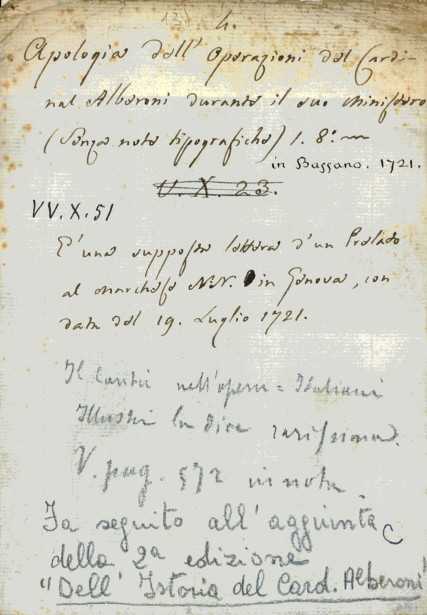 131
4.
Apologia dell' Operazioni del Cardi-
nal Alberoni durante il suo Ministero
(Senza note tipografiche) 1. 8:°
in Bassano. 1721.
U. X. 23.
VV. X. 51
E' una supposta lettera d'un Prelato
al Marchese N.N. in Genova, con
data del 19. Luglio 1721.
Il Cantù nell'opera = Italiani
Illustri la dice rarissima.
V. pag. 572 in nota
Fa seguito all' aggiunta
della 2a edizione
"Dell' Istoria del Card. Alberoni"